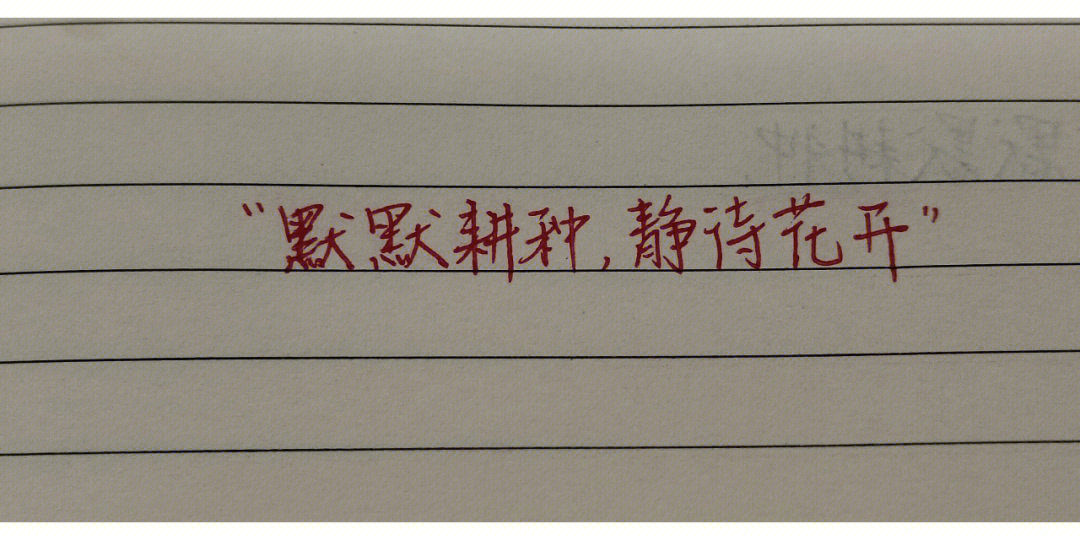 “默默耕种,静待花开”